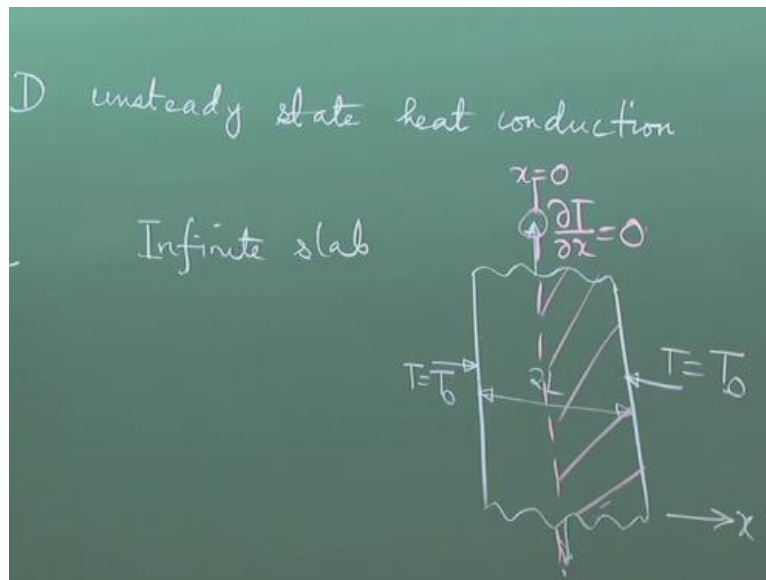 D unsteady state heat conduction
x=0
∂T/∂x=0
Infinite slab
T=T₀
2L
T=T₀
x